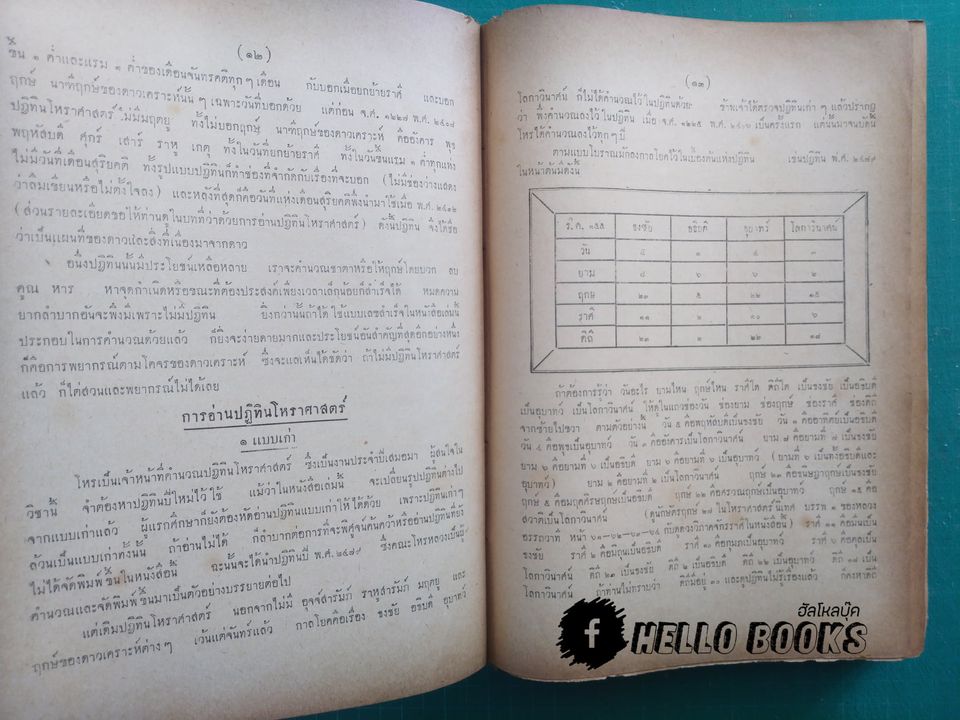 (๑๒)
ขึ้น ๑ ค่ำและแรม ๑ ค่ำของเดือนจันทรคติทุก ๆ เดือน กับบอกเมื่อยกย้ายราศี และบอก
ฤกษ์ นาฑีฤกษ์ของดาวเคราะห์นั้น ๆ เฉพาะวันที่บอกด้วย แต่ก่อน จ.ศ. ๑๒๒๗ พ.ศ. ๒๔๐๘
ปฏิทินโหราศาสตร์ไม่มีมฤตยู ทั้งไม่บอกฤกษ์ นาฑีฤกษ์ของดาวเคราะห์ คืออังคาร พุธ
พฤหัสบดี ศุกร์ เสาร์ ราหู เกตุ ทั้งในวันที่ยกย้ายราศี ทั้งในวันขึ้นแรม ๑ ค่ำทุกแห่ง
ไม่มีวันที่เดือนสุริยคติ ทั้งรูปแบบปฏิทินก็ทำช่องที่จำกัดกับเรื่องที่จะบอก (ไม่มีช่องว่างแสดง
ว่าลืมเขียนหรือไม่ตั้งใจลง) และหลังที่สุดก็คือวันที่แห่งเดือนสุริยคติพึ่งนำมาใช้เมื่อ พ.ศ. ๒๔๓๒
(ส่วนรายละเอียดขอให้ท่านดูในบทที่ว่าด้วยการอ่านปฏิทินโหราศาสตร์) ดังนั้นปฏิทิน จึงได้ชื่อ
ว่าเป็นแผนที่ของดาวและสิ่งที่เนื่องมาจากดาว
อนึ่งปฏิทินนั้นมีประโยชน์เหลือหลาย เราจะคำนวณชาตาหรือให้ฤกษ์โดยบวก ลบ
คูณ หาร หาจุดกำเนิดหรือขณะที่ต้องประสงค์เพียงเวลาเล็กน้อยก็สำเร็จได้ หมดความ
ยากลำบากอันจะพึงมีเพราะไม่มีปฏิทิน ยิ่งกว่านั้นถ้าได้ใช้แบบเลขสำเร็จในหนังสือเล่มนี้
ประกอบในการคำนวณด้วยแล้ว ก็ยิ่งจะง่ายดายมากและประโยชน์อันสำคัญที่สุดอีกอย่างหนึ่ง
ก็คือการพยากรณ์ตามโคจรของดาวเคราะห์ ซึ่งจะแลเห็นได้ชัดว่า ถ้าไม่มีปฏิทินโหราศาสตร์
แล้ว ก็ไต่สวนและพยากรณ์ไม่ได้เลย
การอ่านปฏิทินโหราศาสตร์
๑ แบบเก่า
โหรเป็นเจ้าหน้าที่คำนวณปฏิทินโหราศาสตร์ ซึ่งเป็นงานประจำปีเสมอมา ผู้สนใจใน
วิชานี้ จำต้องหาปฏิทินปีใหม่ไว้ใช้ แม้ว่าในหนังสือเล่มนี้ จะเปลี่ยนรูปปฏิทินต่างไป
จากแบบเก่าแล้ว ผู้แรกศึกษาก็ยังต้องหัดอ่านปฏิทินแบบเก่าให้ได้ด้วย เพราะปฏิทินเก่า ๆ
ล้วนเป็นแบบเก่าทั้งนั้น ถ้าอ่านไม่ได้ ก็ลำบากต่อการที่จะพิศูจน์ค้นคว้าหรืออ่านปฏิทินที่ยัง
ไม่ได้จัดพิมพ์ขึ้นในหนังสือนี้ ฉะนั้นจะได้นำปฏิทินปี พ.ศ. ๒๔๗๙ ซึ่งคณะโหรหลวงเป็นผู้
คำนวณและจัดพิมพ์ขึ้นมาเป็นตัวอย่างบรรยายต่อไป
แต่เดิมปฏิทินโหราศาสตร์ นอกจากไม่มี อุจจ์สารัมภ์ ราหุสารัมภ์ มฤตยู และ
ฤกษ์ของดาวเคราะห์ต่าง ๆ เว้นแต่จันทร์แล้ว กาลโยคคือเรื่อง ธงชัย อธิบดี อุบาทว์
(๑๓)
โลกาวินาศน์ ก็ไม่ได้คำนวณไว้ในปฏิทินด้วย ข้าพเจ้าได้ตรวจปฏิทินเก่า ๆ แล้วปรากฏ
ว่า พึ่งคำนวณลงไว้ในปฏิทิน เมื่อ จ.ศ. ๑๒๒๕ พ.ศ. ๒๔๐๖ เป็นครั้งแรก แต่นั้นมาจนบัดนี้
โหรได้คำนวณลงไว้ทุก ๆ ปี
ตามแบบโบราณมักลงกาลโยคไว้ในเบื้องต้นแห่งปฏิทิน เช่นปฏิทิน พ.ศ. ๒๔๗๙
ในหน้าต้นมีดังนี้
ร.ศ. ๑๕๕ ธงชัย อธิบดี อุบาทว์ โลกาวินาศน์
วัน ๕ ๑ ๔ ๓
ยาม ๘ ๖ ๖ ๒
ฤกษ์ ๒๓ ๕ ๒๒ ๑๕
ราศี ๑๑ ๒ ๑๐ ๖
ดิถี ๒๓ ๒ ๒๒ ๑๘
ถ้าต้องการรู้ว่า วันอะไร ยามไหน ฤกษ์ไหน ราศีใด ดิถีใด เป็นธงชัย เป็นอธิบดี
เป็นอุบาทว์ เป็นโลกาวินาศน์ ให้ดูในแถวของวัน ช่องยาม ช่องฤกษ์ ช่องราศี ช่องดิถี
จากซ้ายไปขวา ตามตัวอย่างนี้ วัน ๕ คือพฤหัสบดีเป็นธงชัย วัน ๑ คืออาทิตย์เป็นอธิบดี
วัน ๔ คือพุธเป็นอุบาทว์ วัน ๓ คืออังคารเป็นโลกาวินาศน์ ยาม ๘ คือยามที่ ๘ เป็นธงชัย
ยาม ๖ คือยามที่ ๖ เป็นอธิบดี ยาม ๖ คือยามที่ ๖ เป็นอุบาทว์ (ยามที่ ๖ เป็นทั้งอธิบดีและ
อุบาทว์) ยาม ๒ คือยามที่ ๒ เป็นโลกาวินาศน์ ฤกษ์ ๒๓ คือธนิษฐาฤกษ์เป็นธงชัย
ฤกษ์ ๕ คือมฤคศิรฤกษ์เป็นอธิบดี ฤกษ์ ๒๒ คือศรวณฤกษ์เป็นอุบาทว์ ฤกษ์ ๑๕ คือ
สวาติเป็นโลกาวินาศน์ (ดูนักษัตรฤกษ์ ๒๗ ในโหราศาสตร์นิเทศ บรรพ ๑ ของหลวง
อรรถวาที หน้า ๖๑—๖๒—๖๓—๖๔ กับดูดวงวิภาคจักรราศีในหนังสือนี้) ราศี ๑๑ คือมีนเป็น
ธงชัย ราศี ๒ คือมิถุนเป็นอธิบดี ราศี ๑๐ คือมกรเป็นอุบาทว์ ราศี ๖ คือตุลเป็น
โลกาวินาศน์ ดิถี ๒๓ เป็นธงชัย ดิถี ๒ เป็นอธิบดี ดิถี ๒๒ เป็นอุบาทว์ ดิถี ๑๘ เป็น
โลกาวินาศน์ ถ้าท่านไม่ทราบว่า ดิถีมีอยู่ ๓๐ และดูปฏิทินไม่รู้เรื่องแล้ว ก็คงหาดิถี
ฮัลโหลบุ๊ค
f HELLO BOOKS